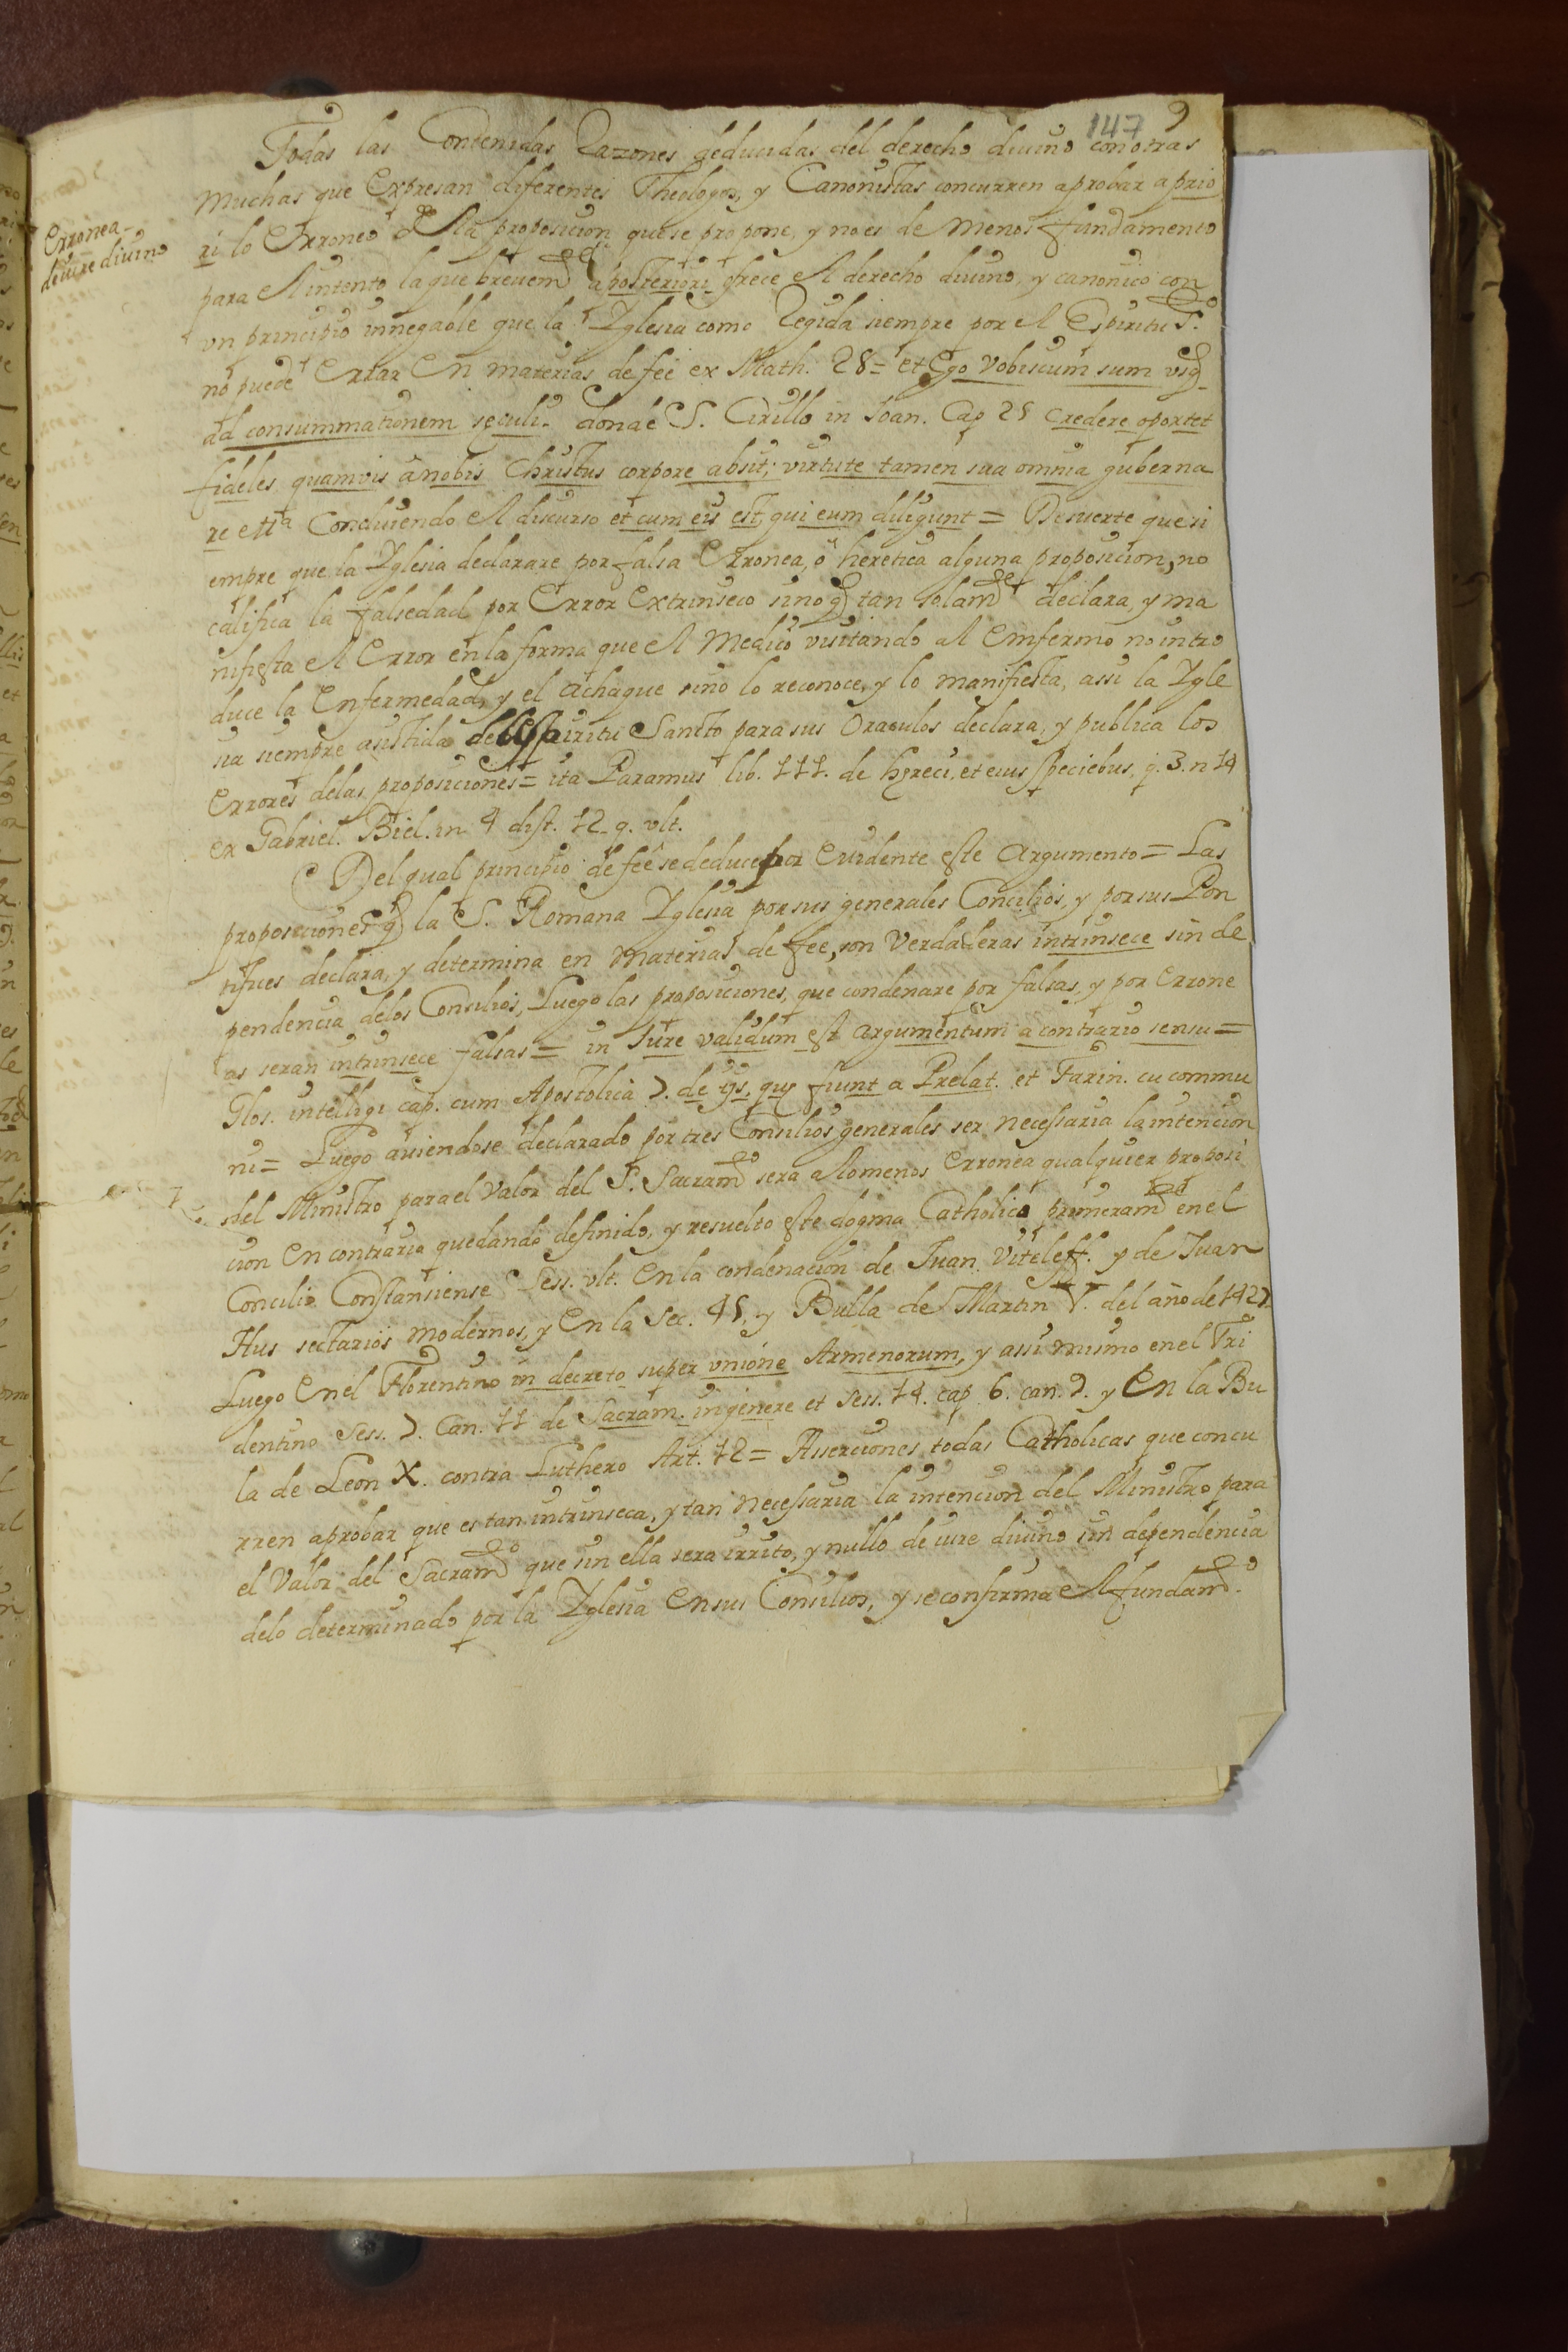 147 9
Todas las Contenidas Razones deducidas del derecho diuino con otras
muchas que Expresan diferentes Theologos, y Canonistas concurren a probar a prio
ri lo Erroneo de la proposicion que se propone, y no es de menos fundamento
Erronea
de iure diuino
para el intento la que breuemte a posteriori ofrece el derecho diuino, y canonico con
vn principio innegable que la Yglesia como Regida siempre por el Espiritu Sto
no puede Errar En materias de feè ex Math. 28= et Ego vobiscum sum vsq
ad consummationem seculi. donde S. Cirillo in Ioan. Cap 21 credere oportet
fideles quamvis a nobis Christus corpore absit; virtute tamen sua omnia guberna
re etta Concluiendo el discurso et cum eis est, qui eum diligunt = De suerte que si
empre que la Yglesia declarare por falsa Erronea, ò heretica alguna proposicion, no
califica la falsedad por Error Extrinseco sino q tan solamte declara, y ma
nifiesta el Error en la forma que el Medico visitando al Emfermo no intro
duce la Enfermedad, y el achaque sino lo reconoce, y lo manifiesta, assi la Ygle
sia siempre asistida del Espiritu Sancto para sus Oraculos declara, y publica los
Errores delas proposiciones = ita Paramus lib. 111. de heresi, et eius speciebus, q. 3. n 14
ex Gabriel. Biel. in 4 dist. 12 q. vlt.
Del qual principio de feè se deduce por Euidente este Argumento = Las
proposiciones q la S. Romana Yglesia por sus generales Concilios, y por sus Pon
tifices declara, y determina en materias de feè, son Verdaderas intrinsece sin de
pendencia delos Consilios, Luego las proposiciones, que condenare por falsas, y por Errone
as seran intrinsece falsas = in Iure validum est argumentum a contrario sensu =
Glos. intelligi cap. cum Apostolica 7. de ijs, que fiunt a Prelat. et Farin. cu commu
ni = Luego auiendose declarado por tres Consilios generales ser necessaria la intencion
del Ministro para el Valor del S. Sacramto sera alomenos Erronea qualquier proposi
cion En contrario quedando definido, y resuelto este dogma Catholico primeramte en el
Concilio Constansiense Sess. vlt. En la condenacion de Iuan Viteleff. y de Iuan
Hus sectarios modernos, y En la Sec. 45, y Bulla de Martin V. del año de 1427.
Luego En el Florentino in decreto super vnione Armenorum, y assi mismo en el Tri
dentino Sess. 7. Can. 11 de Sacram. in genere et Sess. 14. cap. 6. can. 9. y En la Bu
la de Leon X. contra Luthero Art. 12 = Aserciones todas Catholicas que concu
rren a probar que es tan intrinseca, y tan necessaria la intencion del Ministro para
el Valor del Sacramto que sin ella sera irrito, y nullo de iure diuino sin dependencia
delo determinado por la Yglesia En sus Consilios, y se confirma el fundamto.